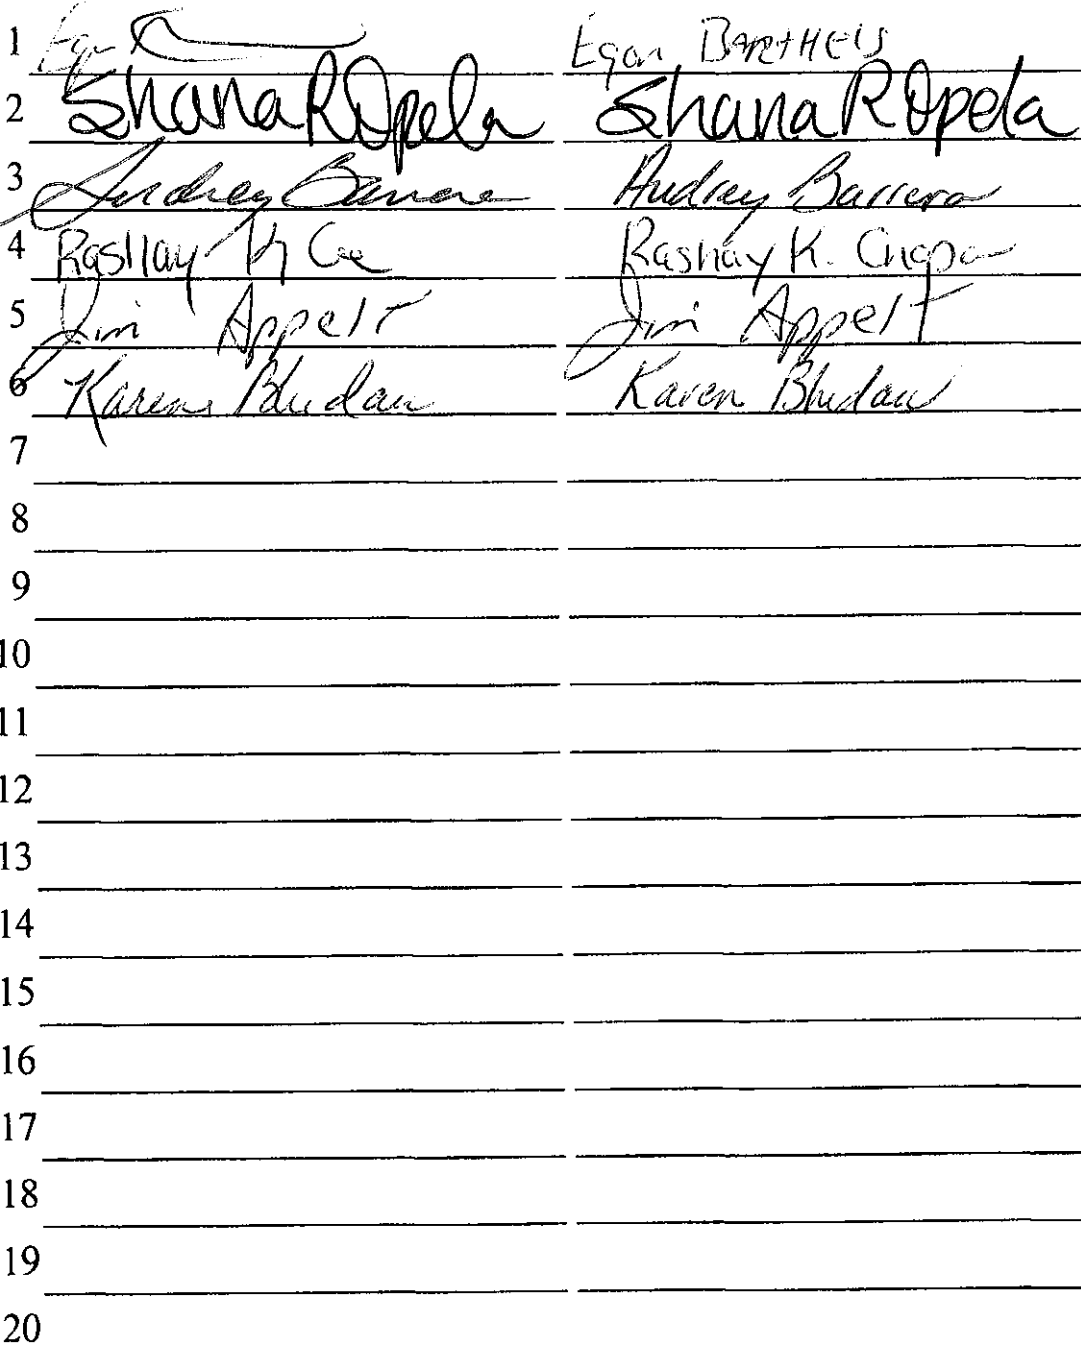 1 Egon Barthels
2 Shana R Opela Shana R Opela
3 Audrey Barrera Audrey Barrera
4 Rashay K Rashay K. Chapa
5 Jim Appelt Jim Appelt
6 Karen Bludau Karen Bludau
7
8
9
10
11
12
13
14
15
16
17
18
19
20